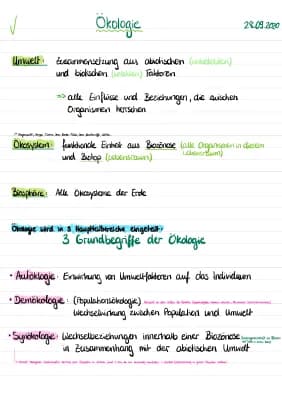 Ökologie
28.09.2020
Umwelt: Zusammensetzung aus abiotischen (unbelebten)
und biotischen (belebten) Faktoren
=> alle Einflüsse und Beziehungen, die zwischen
Organismen herrschen
Ökosystem: funktionale Einheit aus Biozönose (alle Organismen in diesem
Lebensraum)
und Biotop (Lebensraum)
Biosphäre: Alle Ökosysteme der Erde
Ökologie wird in 3 Hauptteilbereiche eingeteilt:
3 Grundbegriffe der Ökologie
• Autökologie: Einwirkung von Umweltfaktoren auf das Individuum
• Demökologie: (Populationsökologie)
Wechselwirkung zwischen Population und Umwelt
• Synökologie: Wechselbeziehungen innerhalb einer Biozönose
in Zusammenhang mit der abiotischen Umwelt